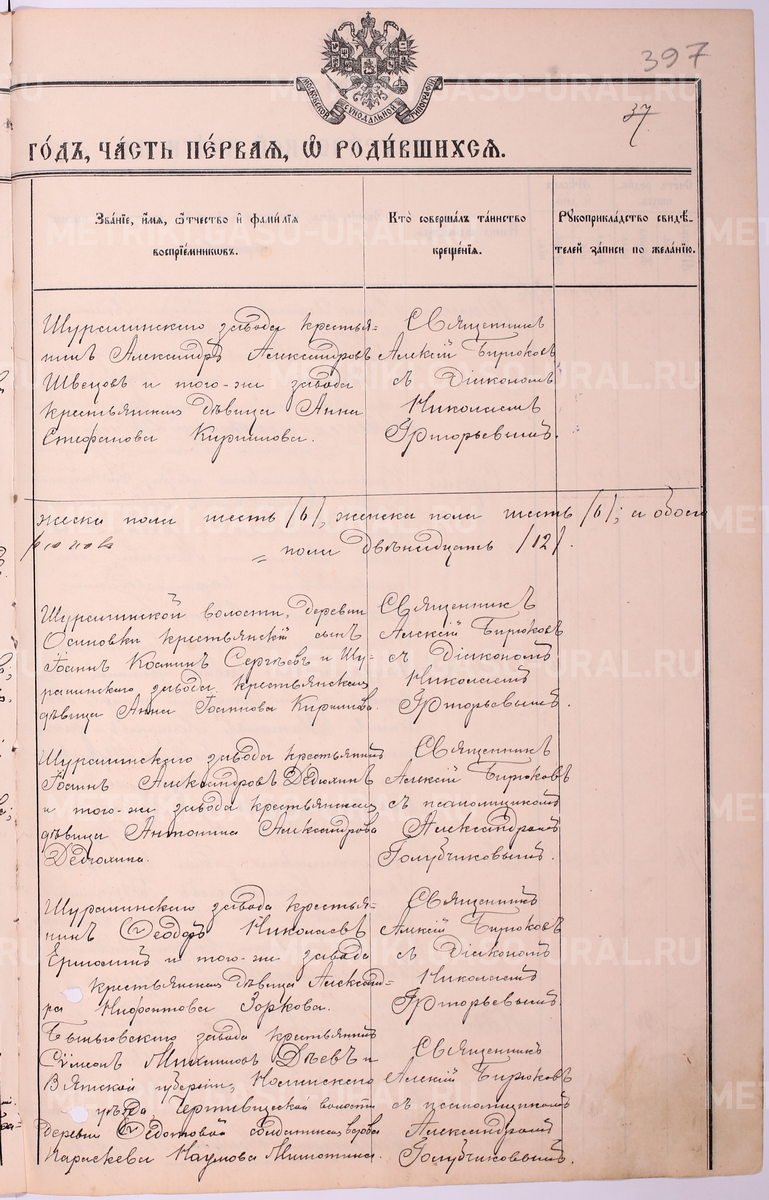 397
37
МОСКОВСКОЙ СѴНОДАЛЬНОЙ ТИПОГРАФІИ
го́дъ, ча́сть пе́рвая, ѡ҆ роди́вшихся.
Зва́ніе, и҆́мя, ѻ҆́тчество и҆ фами́лїя
воспрїе́мниковъ.
Кто̀ соверша́лъ та́инство
креще́нїя.
Рꙋкоприкла́дство свидѣ́-
телей за́писи по жела́нїю.
Шуралинскаго завода крестья-
нинъ Александръ Александровъ
Швецовъ и того-же завода
крестьянская дѣвица Анна
Стефанова Кириллова.
Священникъ
Алексій Бирюковъ
съ Діакономъ
Николаемъ
Григорьевымъ.
жеска пола шесть /6/, женска пола шесть /6/; а обоего
пола двѣнадцать /12/.
Шуралинской волости, деревни
Осиновки крестьянскій сынъ
Іоаннъ Космінъ Сергѣевъ и Шу-
ралинскаго завода крестьянская
дѣвица Анна Іоаннова Кириллова.
Священникъ
Алексій Бирюковъ
съ Діакономъ
Николаемъ
Григорьевымъ.
Шуралинскаго завода крестьянинъ
Іоаннъ Александровъ Дедюхинъ
и того-же завода крестьянская
дѣвица Антонина Александрова
Дедюхина.
Священникъ
Алексій Бирюковъ
съ псаломщикомъ
Александромъ
Голубчиковымъ.
Шуралинскаго завода крестья-
нинъ Ѳеодоръ Николаевъ
и того-же завода
крестьянская дѣвица Александ-
ра Нифонтова Зоркова.
Священникъ
Алексій Бирюковъ
съ Діакономъ
Николаемъ
Григорьевымъ.
Быньговскаго завода крестьянинъ
Сѵмеонъ Михаиловъ Дѣевъ и
Вятской губерніи, Нолинскаго
уѣзда, волости
деревни Ѳедотовой солдатская вдова
Параскева Наумова
Священникъ
Алексій Бирюковъ
съ псаломщикомъ
Александромъ
Голубчиковымъ.
METRIKI.GASO-URAL.RU